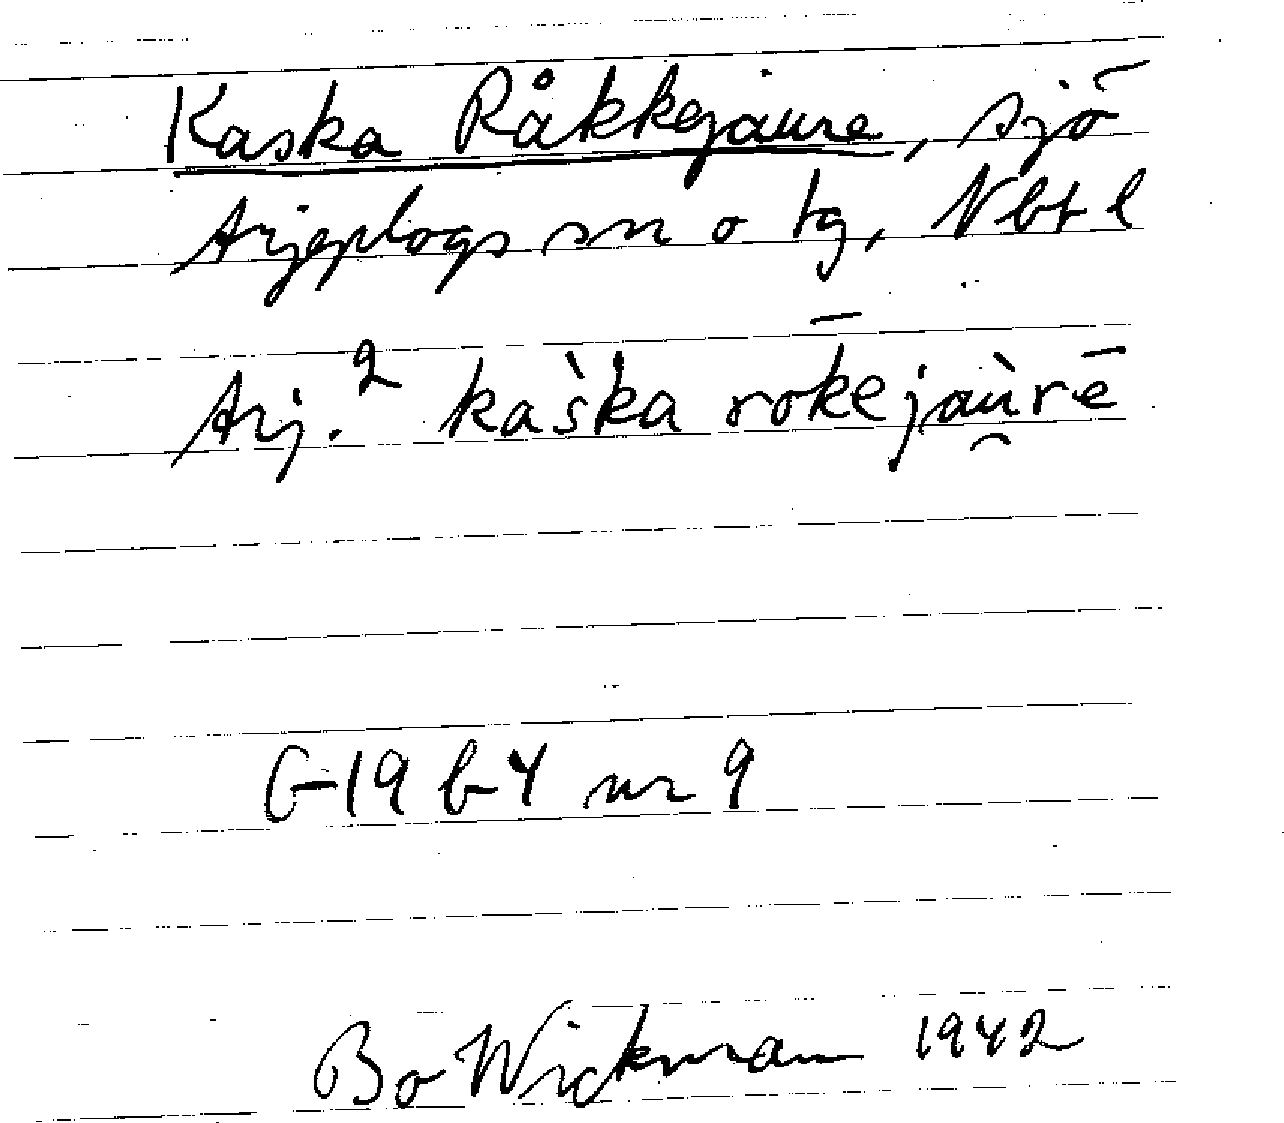 Kaska Råkkejaure, sjö
Arjeplogs sn o tg, Nbt l
Arj.² kas̀k̀a rok̄ejaùrē
G-19 b-4 nr 9
Bo Wickman 1942